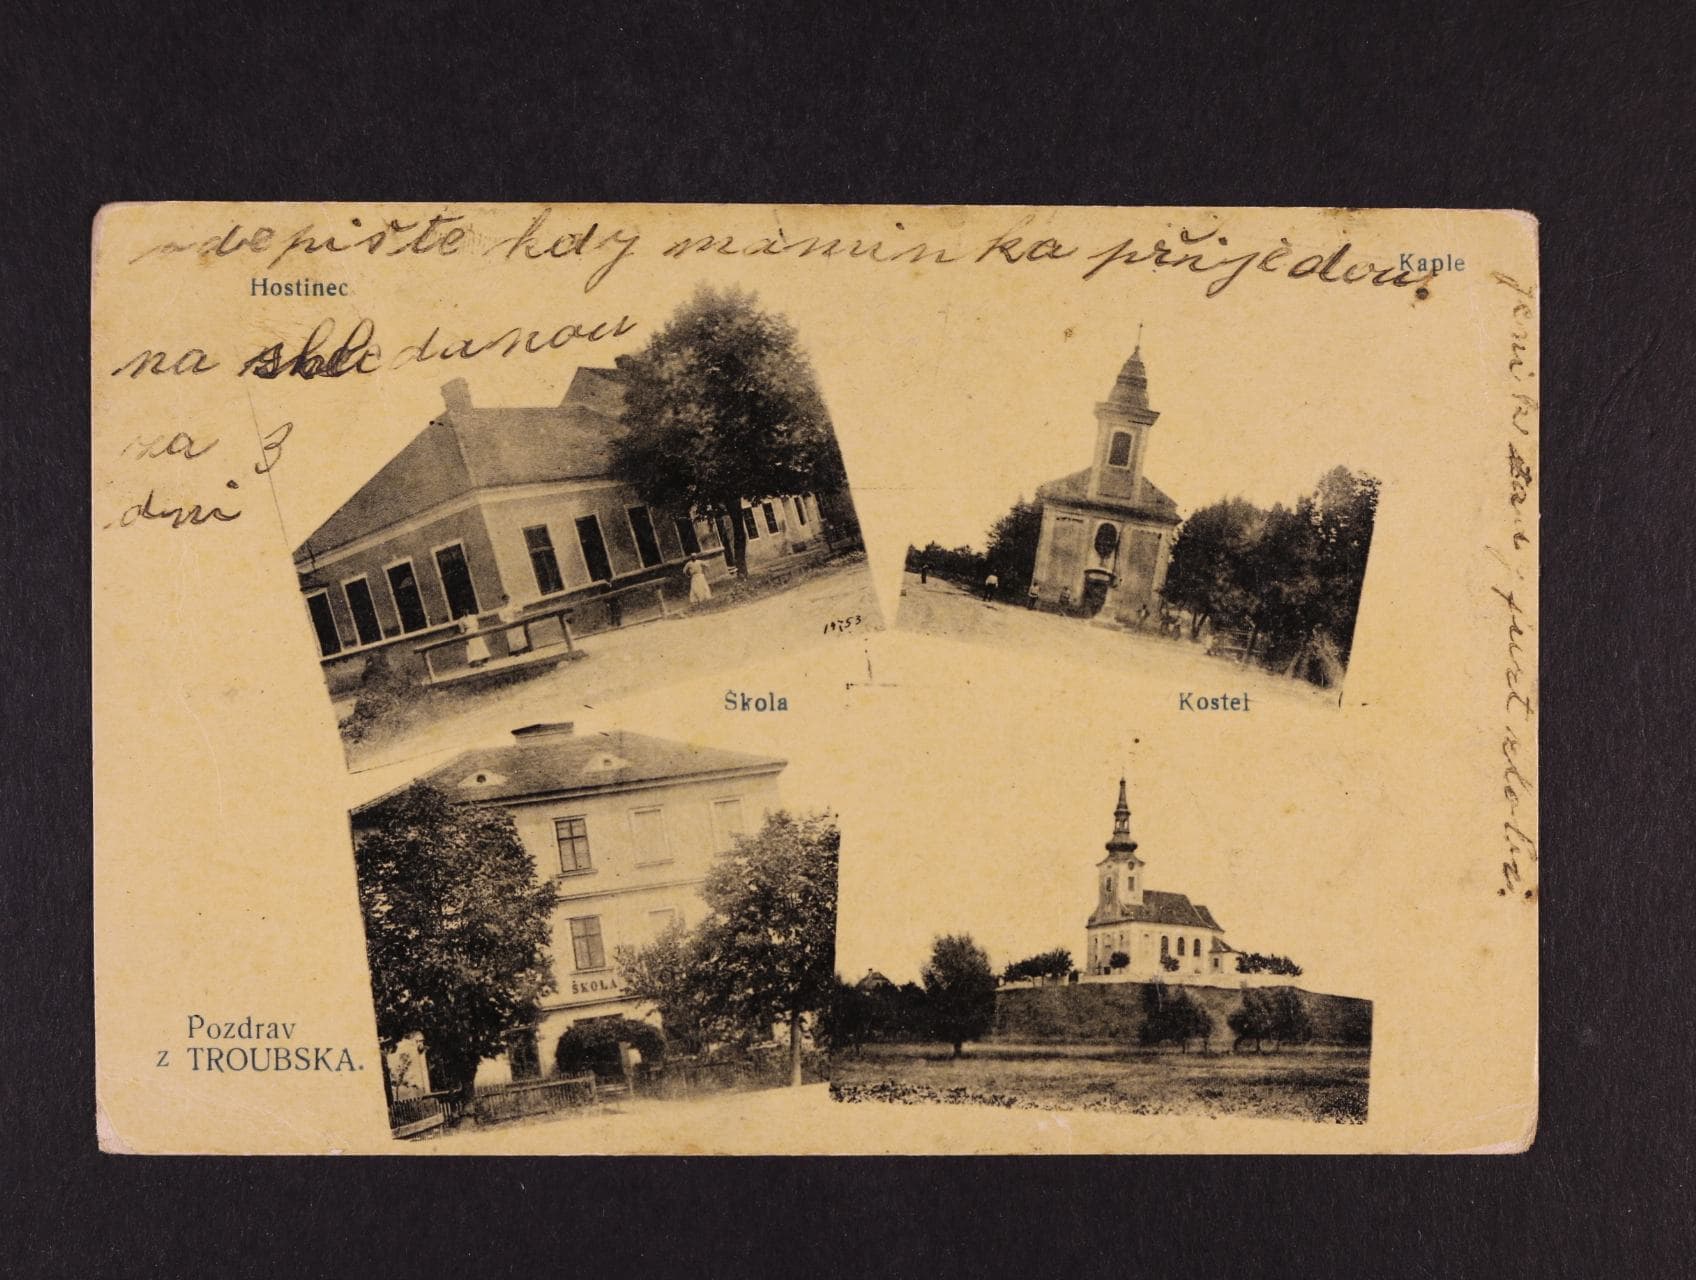 odepište kdy maminka přijedou.
Hostinec
Kaple
na shledanou
za 3
dni
19753
Škola
Kostel
ŠKOLA
Pozdrav
z TROUBSKA.